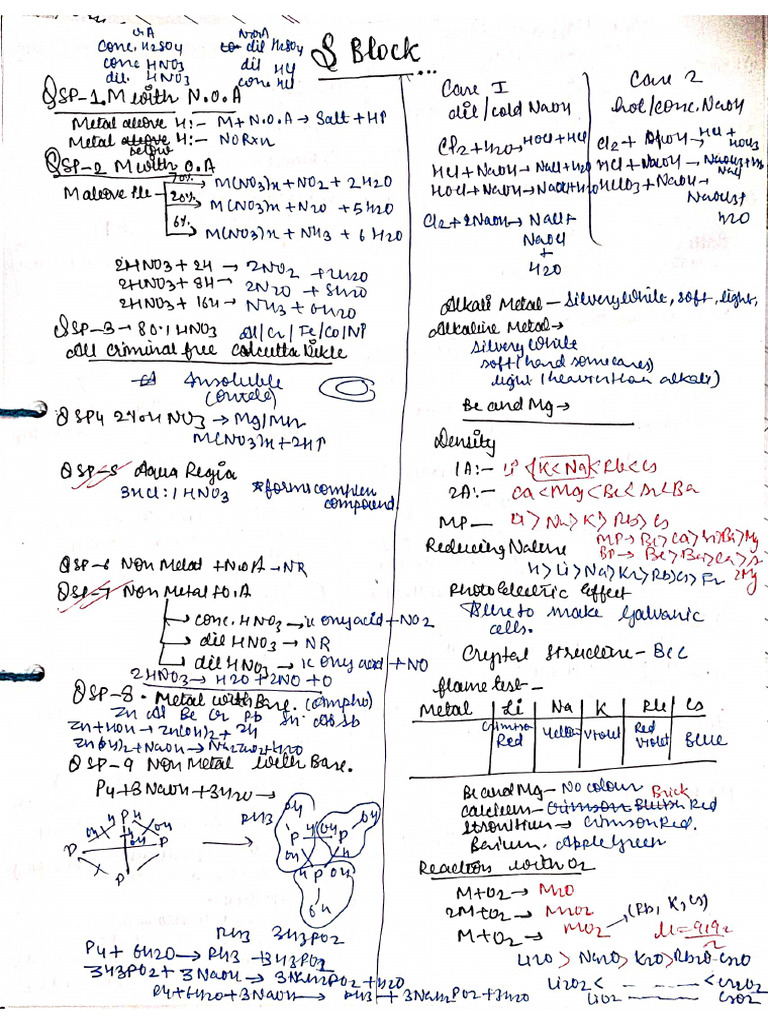 S Block...
OA
conc. H2SO4
conc HNO3
dil. HNO3
NOA
dil H2SO4
dil HCl
conc HCl
SP-1. M with N.O.A
Metal above H:- M + N.O.A → Salt + H↑
Metal below H:- NORxn
SP-2 M with O.A
M above H
70% → M(NO3)x + NO2 + 2H2O
20% → M(NO3)x + N2O + 5H2O
6% → M(NO3)x + NH3 + 6H2O
2HNO3 + 2H → 2NO2 + 2H2O
2HNO3 + 8H → 2N2O + 5H2O
2HNO3 + 16H → NH3 + 6H2O
SP-3 → 80% HNO3 Al/Cr/Fe/Co/Ni
All Criminal free Calcutta Nikle
Insoluble
(oxide)
SP4 2% HNO3 → Mg/Mn
M(NO3)x + 2H↑
SP-5 Aqua Regia
3HCl : 1HNO3 *forms complex
compound.
SP-6 Non Metal + N.O.A → NR
SP-7 Non Metal + O.A
conc. HNO3 → ic oxyacid + NO2
dil HNO3 → NR
dil HNO3 → ic oxyacid + NO
2HNO3 → H2O + 2NO + O
SP-8. Metal with Base. (ampho)
Zn Al Be Cr Pb Sn As Sb
Zn + HOH → Zn(OH)2 + 2H
Zn(OH)2 + NaOH → Na2ZnO2 + H2O
SP-9 Non Metal with Base.
P4 + 3NaOH + 3H2O →
PH3
PH3 3H3PO2
P4 + 6H2O → PH3 + 3H3PO2
3H3PO2 + 3NaOH → 3NaH2PO2 + H2O
P4 + 6H2O + 3NaOH → PH3 + 3NaH2PO2 + 3H2O
Case I
dil/cold NaOH
Cl2 + H2O → HOCl + HCl
HCl + NaOH → NaCl + H2O
HOCl + NaOH → NaOCl + H2O
Cl2 + 2NaOH → NaCl +
NaOCl
+
H2O
Case 2
hot/conc. NaOH
HCl + NaOH →
Alkali Metal - Silvery White, soft, light,
Alkaline Metal →
Silvery White
soft (hard some cases)
light (heavier than alkali)
Be and Mg →
Density
1A:- Li < K < Na < Rb < Cs
2A:- Ca < Mg < Be < Sr < Ba
MP - Li > Na > K > Rb > Cs
MP → Be > Ca > Sr > Ba > Mg
Reducing Nature
H > Li > Na > K > Rb > Cs > Fr
Photo Electric Effect
Use to make Galvanic
cells.
Crystal Structure - Bcc
flame test -
Metal Li Na K Rb Cs
Crimson Red Yellow Violet Red Violet Blue
Be and Mg - No colour
Calcium - Brick Red
Strontium → Crimson Red.
Barium. Apple Green
Reaction with O2
M + O2 → M2O
2M + O2 → M2O2
M + O2 → MO2 (Rb, K, Cs)
Li2O > Na2O > K2O > Rb2O > Cs2O
Li2O2 < - - - - < Cs2O2
LiO2 - - - - CsO2